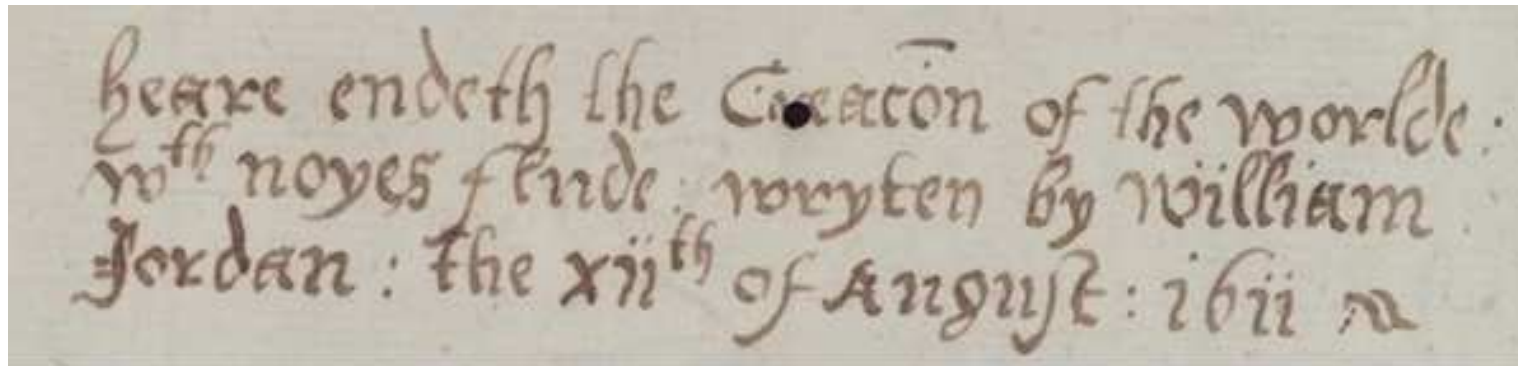 heare endeth the Creacōn of the worlde :
wth noyes flude : wryten by William
Jordan : the xiith of August : i6ii